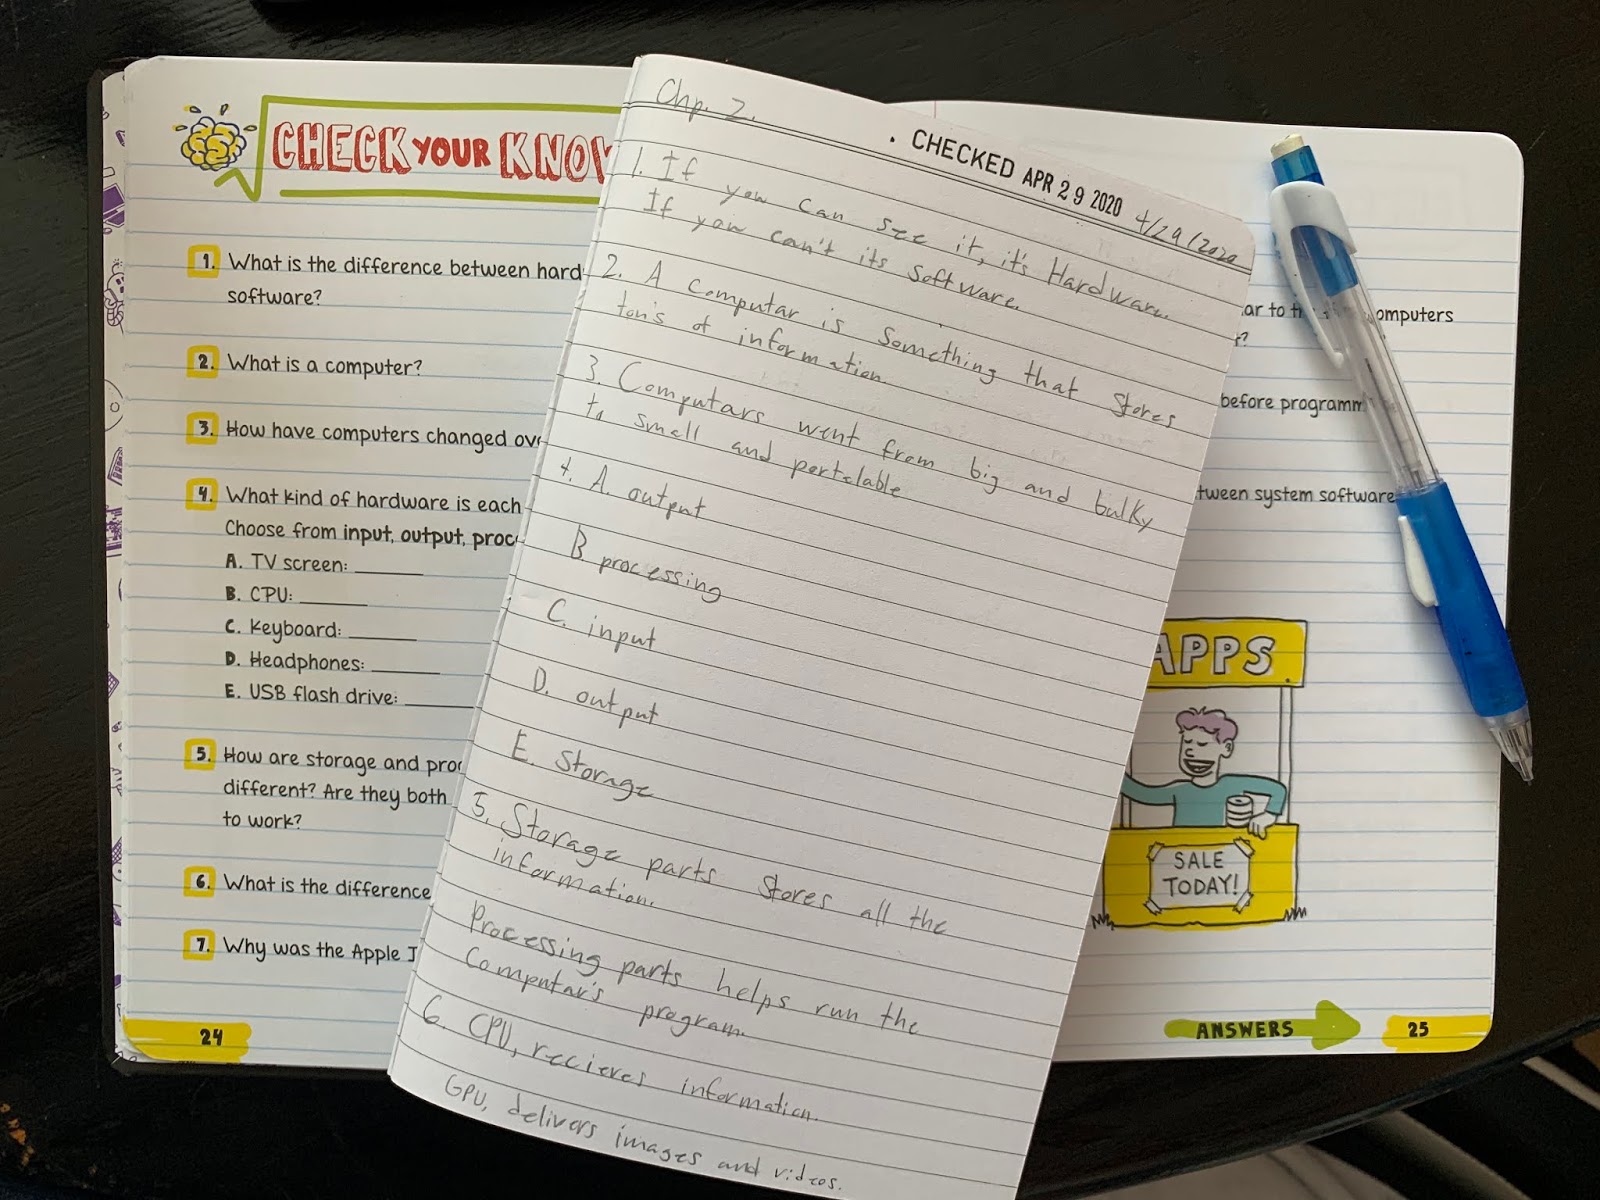 CHECK YOUR KNOW
1. What is the difference between hard
software?
2. What is a computer?
3. How have computers changed ov
4. What kind of hardware is each
Choose from input, output, proc
A. TV screen:
B. CPU:
C. Keyboard:
D. Headphones:
E. USB flash drive:
5. How are storage and pro
different? Are they both
to work?
6. What is the difference
7. Why was the Apple I
24
Chp. 2.
CHECKED APR 29 2020
4/29/2020
1. If you can see it, it's Hardware.
If you can't its software.
2. A computar is something that stores
ton's of information.
3. Computars went from big and bulky
to small and portalable
4. A. output
B processing
C. input
D. output
E. Storage
5. Storage parts stores all the
information.
Processing parts helps run the
Computar's program.
6. CPU, recieves information.
GPU, delivers images and videos.
ar to th omputers
?
before programm
tween system software
APPS
SALE
TODAY!
ANSWERS
25